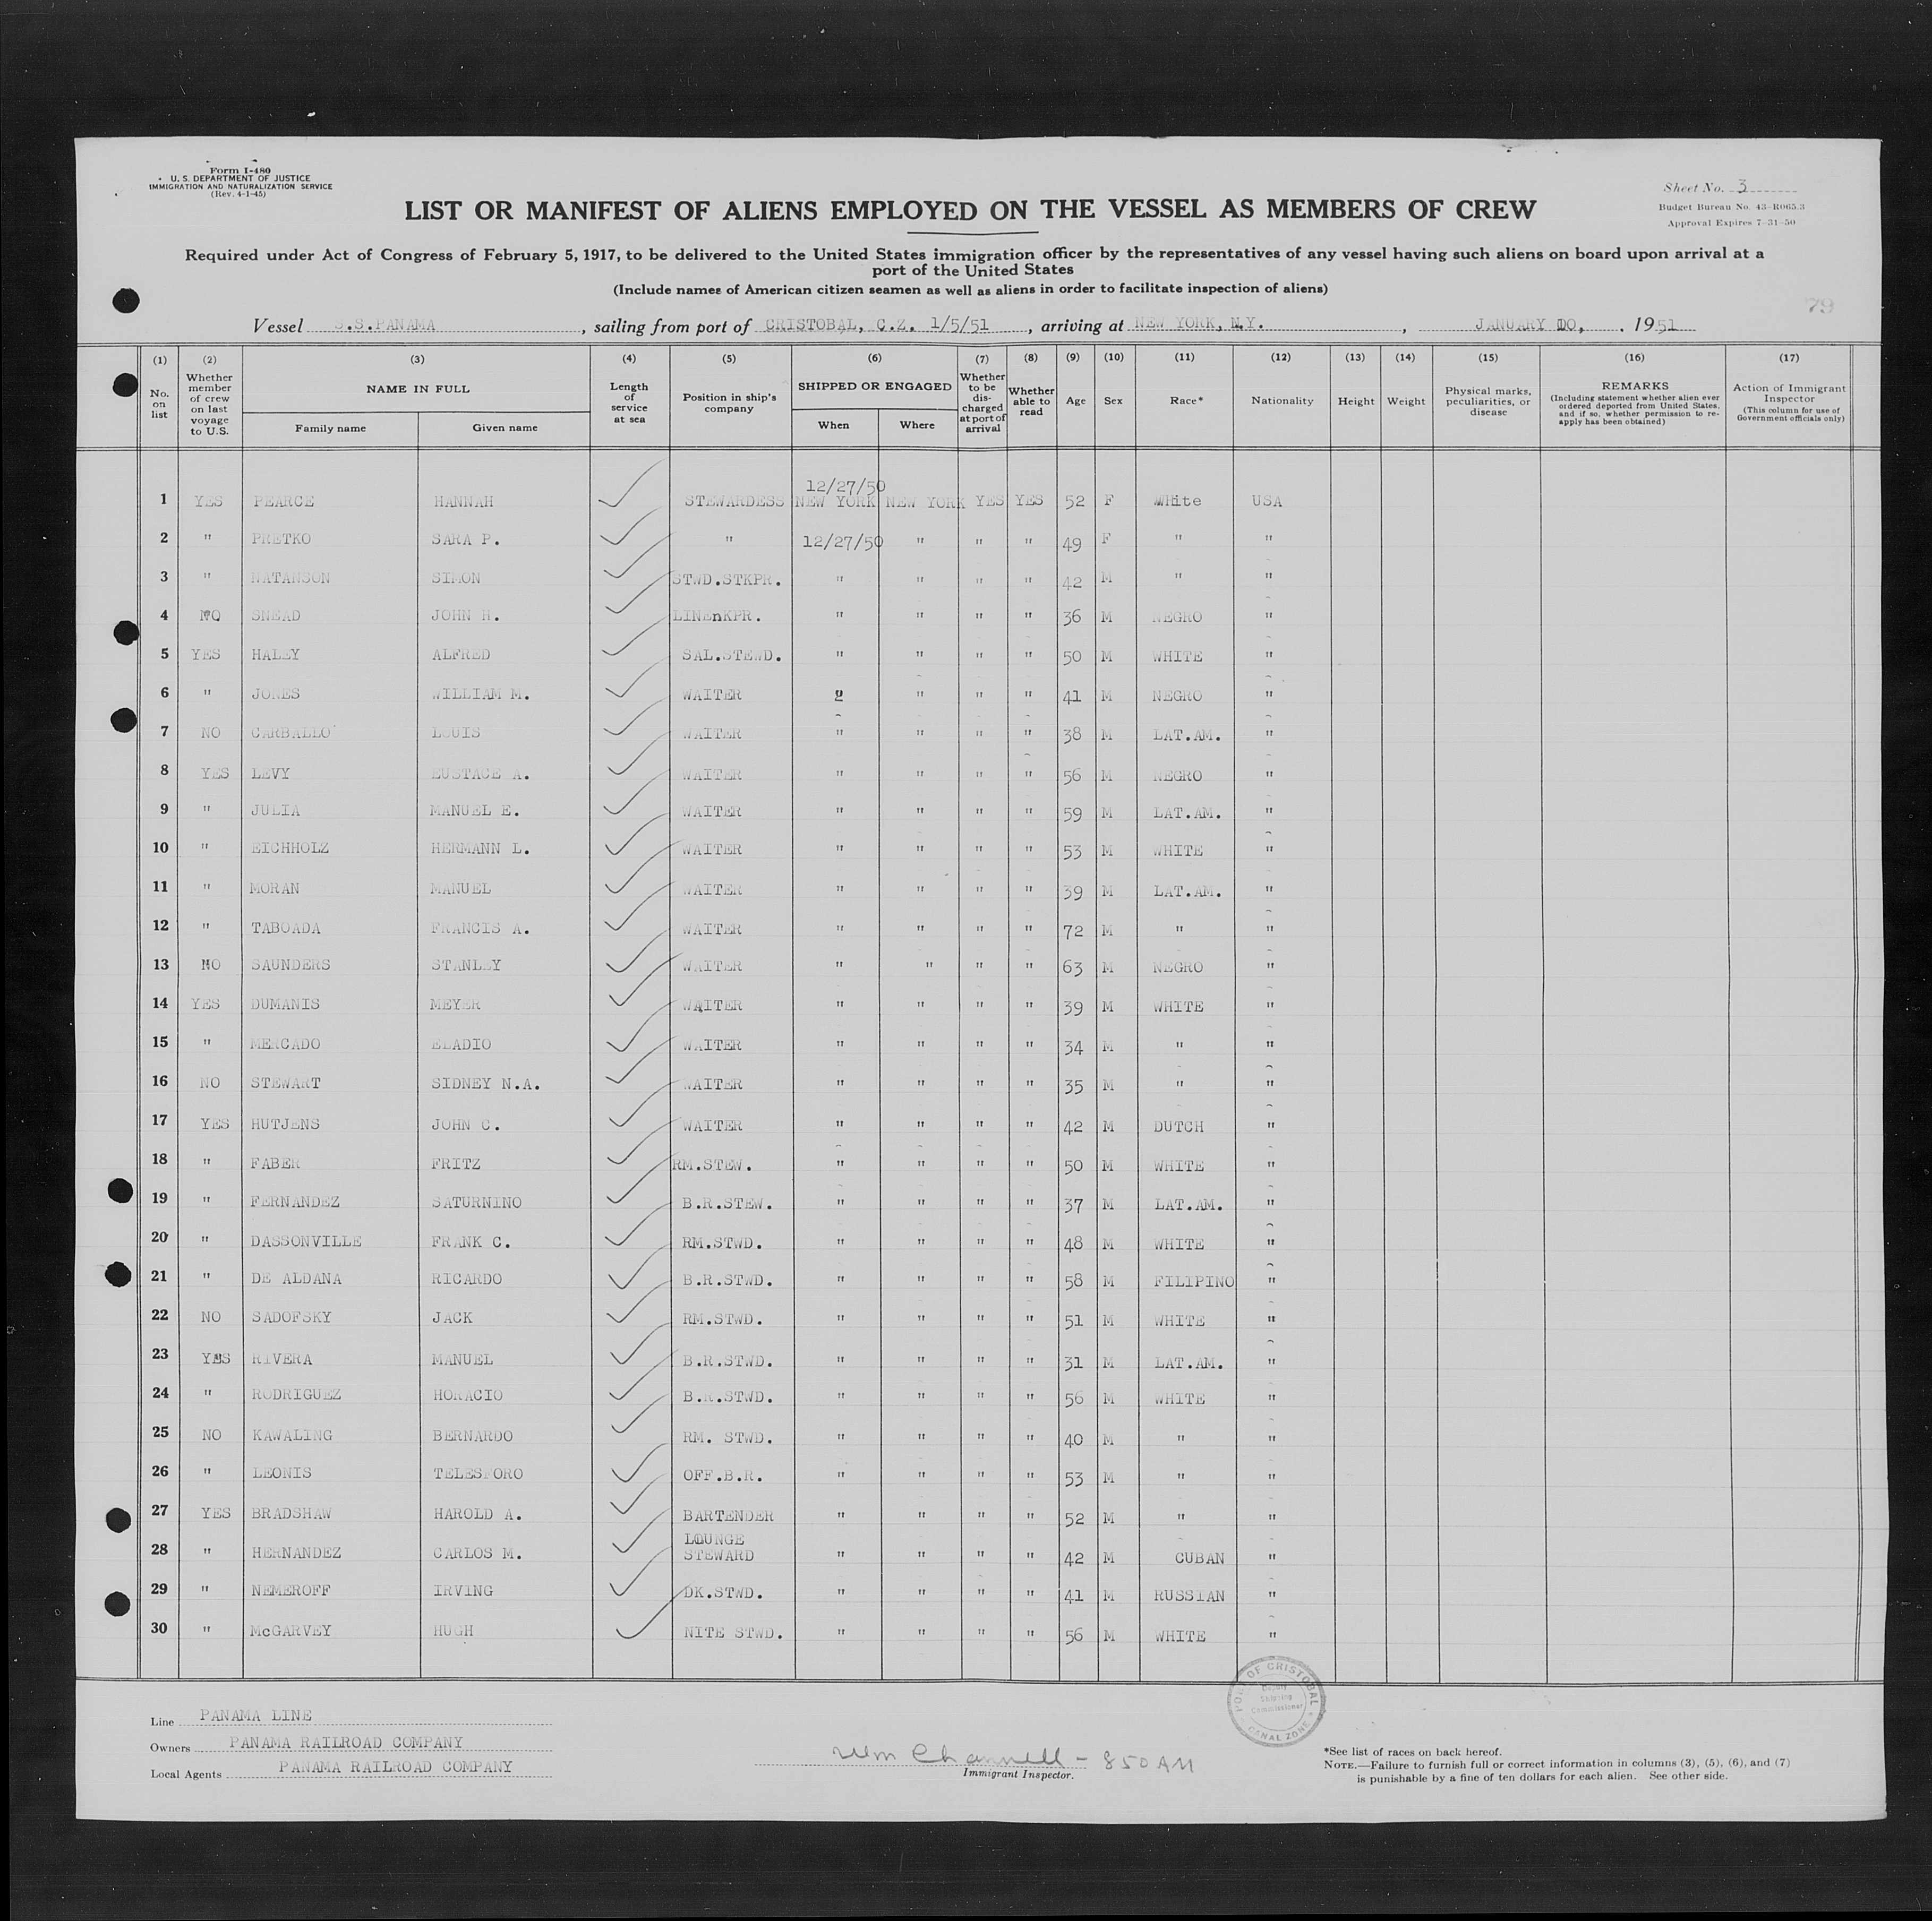 Form I-480
U. S. DEPARTMENT OF JUSTICE
IMMIGRATION AND NATURALIZATION SERVICE
(Rev. 4-1-45)
Sheet No. 3
Budget Bureau No. 43-R065.3
Approval Expires 7-31-50
LIST OR MANIFEST OF ALIENS EMPLOYED ON THE VESSEL AS MEMBERS OF CREW
Required under Act of Congress of February 5, 1917, to be delivered to the United States immigration officer by the representatives of any vessel having such aliens on board upon arrival at a
port of the United States
(Include names of American citizen seamen as well as aliens in order to facilitate inspection of aliens)
79
Vessel S.S.PANAMA, sailing from port of CRISTOBAL, C.Z. 1/5/51, arriving at NEW YORK, N.Y., JANUARY 10, 1951
(1) (2) (3) (4) (5) (6) (7) (8) (9) (10) (11) (12) (13) (14) (15) (16) (17)
No. on list
Whether member of crew on last voyage to U.S.
NAME IN FULL
Family name Given name
Length of service at sea
Position in ship's company
SHIPPED OR ENGAGED
When Where
Whether to be discharged at port of arrival
Whether able to read
Age Sex Race* Nationality Height Weight
Physical marks, peculiarities, or disease
REMARKS
(Including statement whether alien ever ordered deported from United States, and if so, whether permission to reapply has been obtained)
Action of Immigrant Inspector
(This column for use of Government officials only)
12/27/50
1 YES PEARCE HANNAH STEWARDESS NEW YORK NEW YORK YES YES 52 F White USA
2 " PRETKO SARA P. " 12/27/50 " " " 49 F " "
3 " NATANSON SIMON STWD.STKPR. " " " " 42 M " "
4 NO SNEAD JOHN H. LINEnKPR. " " " " 36 M NEGRO "
5 YES HALEY ALFRED SAL.STEWD. " " " " 50 M WHITE "
6 " JONES WILLIAM M. WAITER " " " " 41 M NEGRO "
7 NO CARBALLO LOUIS WAITER " " " " 38 M LAT.AM. "
8 YES LEVY EUSTACE A. WAITER " " " " 56 M NEGRO "
9 " JULIA MANUEL E. WAITER " " " " 59 M LAT.AM. "
10 " EICHHOLZ HERMANN L. WAITER " " " " 53 M WHITE "
11 " MORAN MANUEL WAITER " " " " 39 M LAT.AM. "
12 " TABOADA FRANCIS A. WAITER " " " " 72 M " "
13 NO SAUNDERS STANLEY WAITER " " " " 63 M NEGRO "
14 YES DUMANIS MEYER WAITER " " " " 39 M WHITE "
15 " MERCADO ELADIO WAITER " " " " 34 M " "
16 NO STEWART SIDNEY N.A. WAITER " " " " 35 M " "
17 YES HUTJENS JOHN C. WAITER " " " " 42 M DUTCH "
18 " FABER FRITZ RM.STEW. " " " " 50 M WHITE "
19 " FERNANDEZ SATURNINO B.R.STEW. " " " " 37 M LAT.AM. "
20 " DASSONVILLE FRANK C. RM.STWD. " " " " 48 M WHITE "
21 " DE ALDANA RICARDO B.R.STWD. " " " " 58 M FILIPINO "
22 NO SADOFSKY JACK RM.STWD. " " " " 51 M WHITE "
23 YES RIVERA MANUEL B.R.STWD. " " " " 31 M LAT.AM. "
24 " RODRIGUEZ HORACIO B.R.STWD. " " " " 56 M WHITE "
25 NO KAWALING BERNARDO RM. STWD. " " " " 40 M " "
26 " LEONIS TELESFORO OFF.B.R. " " " " 53 M " "
27 YES BRADSHAW HAROLD A. BARTENDER " " " " 52 M " "
28 " HERNANDEZ CARLOS M. LOUNGE STEWARD " " " " 42 M CUBAN "
29 " NEMEROFF IRVING DK.STWD. " " " " 41 M RUSSIAN "
30 " McGARVEY HUGH NITE STWD. " " " " 56 M WHITE "
PORT OF CRISTOBAL
Deputy
Shipping
Commissioner
CANAL ZONE
Line PANAMA LINE
Owners PANAMA RAILROAD COMPANY
Local Agents PANAMA RAILROAD COMPANY
Wm Channell - 850 AM
Immigrant Inspector.
*See list of races on back hereof.
NOTE.—Failure to furnish full or correct information in columns (3), (5), (6), and (7)
is punishable by a fine of ten dollars for each alien. See other side.